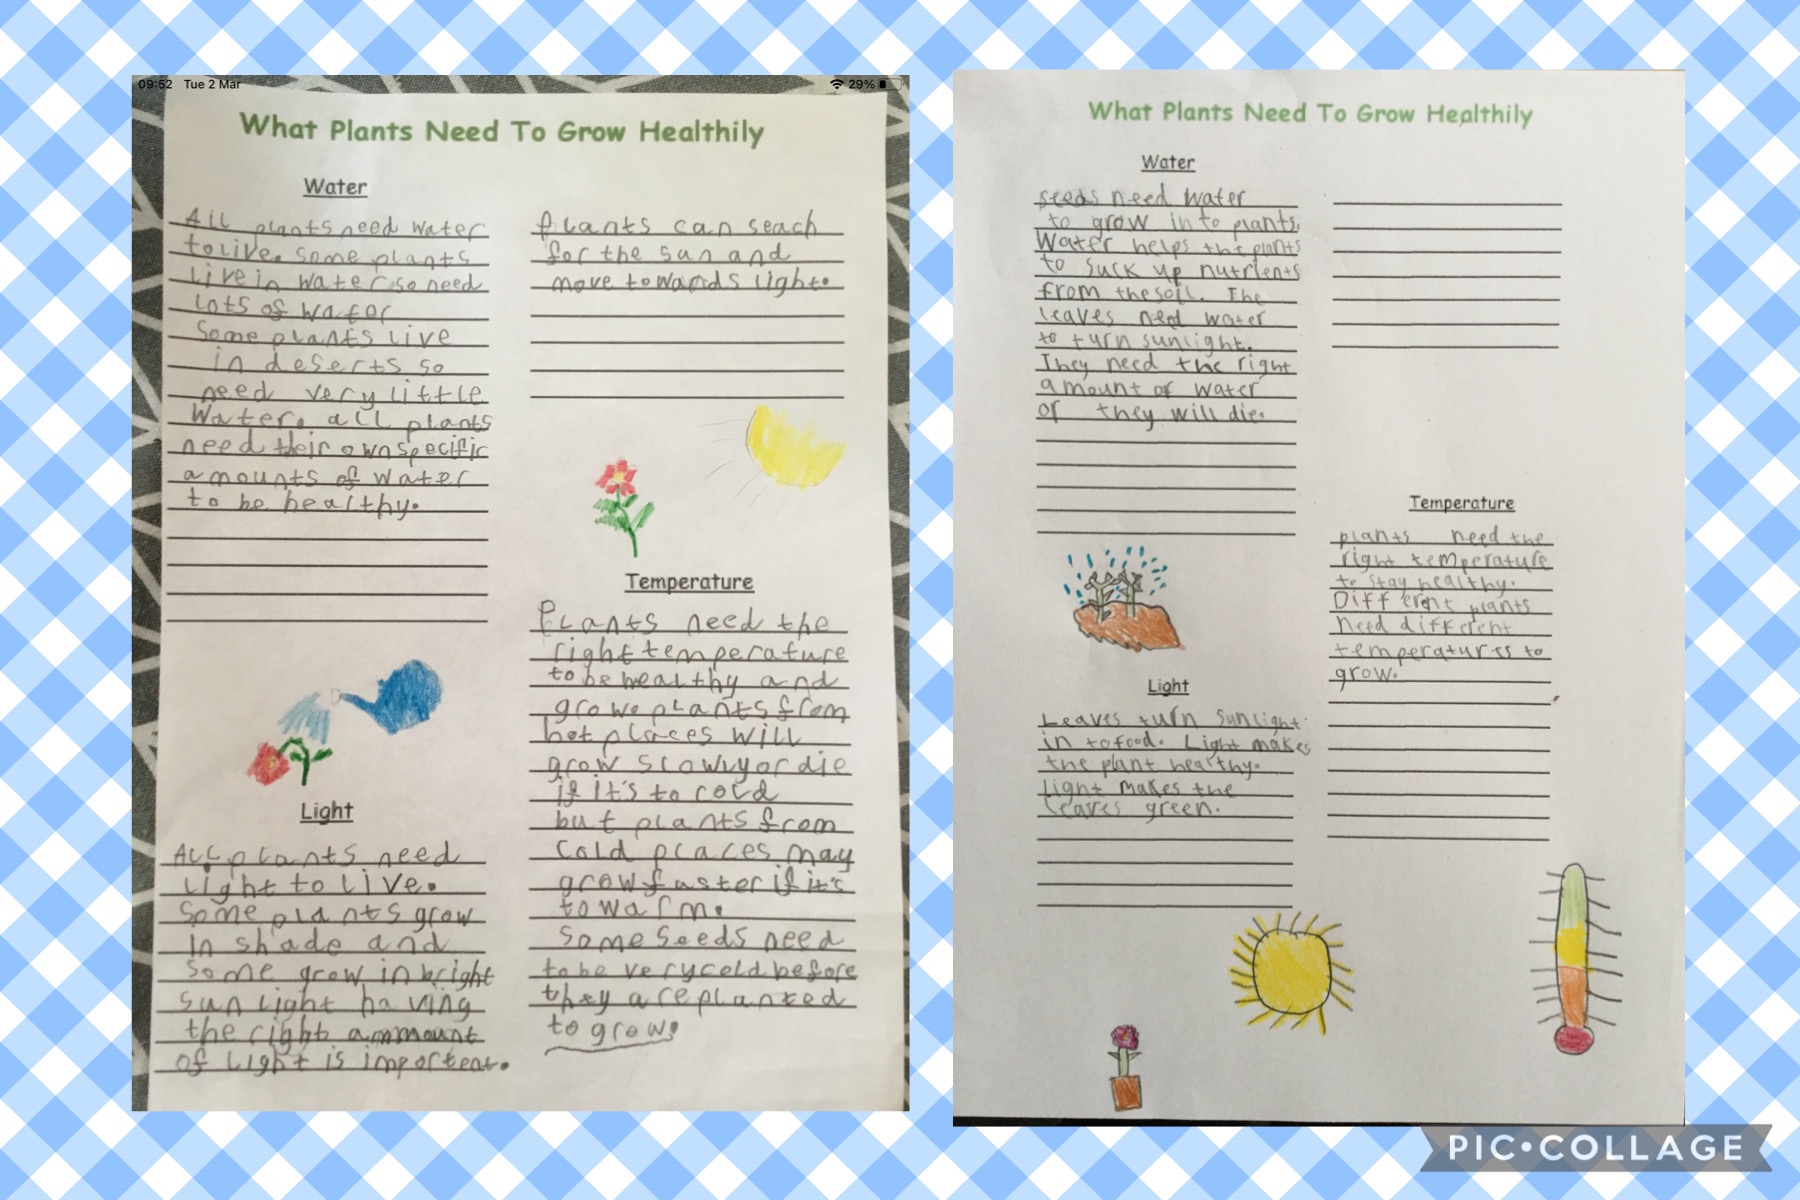 09:52 Tue 2 Mar
29%
What Plants Need To Grow Healthily
Water
All plants need water
to live. some plants
live in water so need
lots of water
Some plants live
in deserts so
need very little
water. all plants
need their own specific
amounts of water
to be healthy.
Light
All plants need
light to live.
Some plants grow
in shade and
some grow in bright
sunlight having
the right ammount
of light is importent.
Plants can seach
for the sun and
move towards light.
Temperature
Plants need the
right temperature
to be healthy and
grow plants from
hot places will
grow slowly or die
if it's to cold
but plants from
cold places may
grow faster if it's
to warm.
Some seeds need
to be very cold before
they are planted
to grow.
What Plants Need To Grow Healthily
Water
seeds need water
to grow in to plants.
Water helps the plants
to suck up nutrients
from the soil. The
leaves need water
to turn sunlight.
They need the right
amount of water
or they will die.
Light
Leaves turn sunlight
in to food. Light makes
the plant healthy.
light makes the
leaves green.
Temperature
plants need the
right temperature
to stay healthy.
Different plants
need different
temperatures to
grow.
PIC•COLLAGE